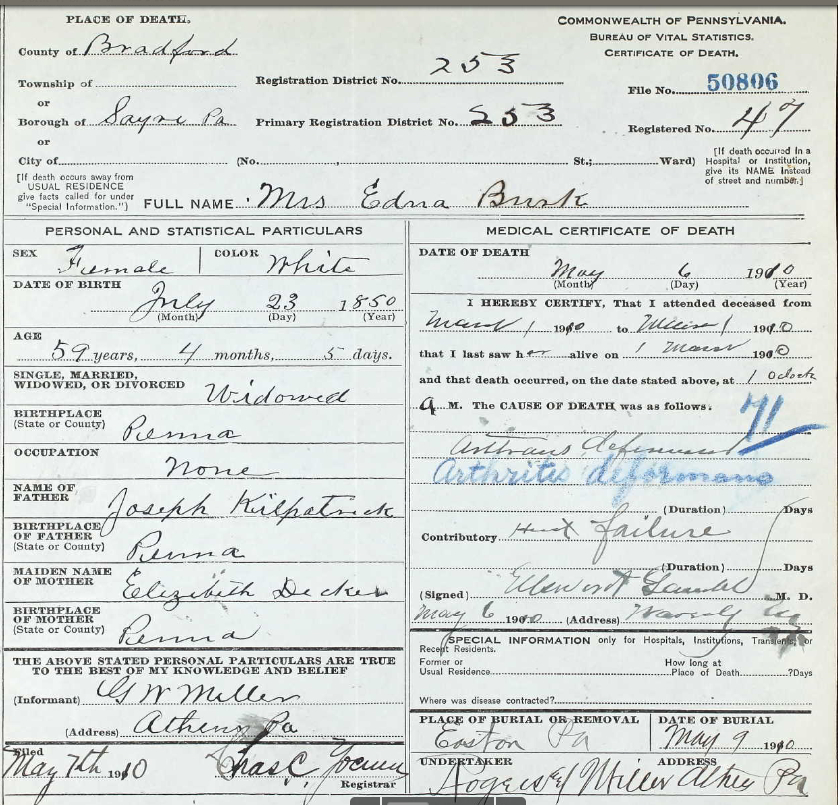 PLACE OF DEATH.
County of Bradford
Township of
or
Borough of Sayre Pa
or
City of
[If death occurs away from
USUAL RESIDENCE
give facts called for under
"Special Information."]
COMMONWEALTH OF PENNSYLVANIA.
BUREAU OF VITAL STATISTICS.
CERTIFICATE OF DEATH.
Registration District No. 253
Primary Registration District No. 253
(No. , St.; Ward)
File No. 50806
Registered No. 47
[If death occurred in a
Hospital or Institution,
give its NAME instead
of street and number.]
FULL NAME Mrs Edna Burk
PERSONAL AND STATISTICAL PARTICULARS
SEX Female COLOR White
DATE OF BIRTH
July 23 1850
(Month) (Day) (Year)
AGE
59 years, 4 months, 5 days.
SINGLE, MARRIED,
WIDOWED, OR DIVORCED Widowed
BIRTHPLACE
(State or County) Penna
OCCUPATION
None
NAME OF
FATHER Joseph Kilpatrick
BIRTHPLACE
OF FATHER
(State or County) Penna
MAIDEN NAME
OF MOTHER Elizibeth Decker
BIRTHPLACE
OF MOTHER
(State or County) Penna
THE ABOVE STATED PERSONAL PARTICULARS ARE TRUE
TO THE BEST OF MY KNOWLEDGE AND BELIEF
(Informant) G W Miller
(Address) Athens Pa
Filed
May 7th 1910 Chas C.
Registrar
MEDICAL CERTIFICATE OF DEATH
DATE OF DEATH
May 6 1910
(Month) (Day) (Year)
I HEREBY CERTIFY, That I attended deceased from
1910 to 1910
that I last saw her alive on 1 1910
and that death occurred, on the date stated above, at 1 Oclock
A M. The CAUSE OF DEATH was as follows:
71
Arthritis deformans
(Duration) Days
Contributory Heart failure
(Duration) Days
(Signed) M. D.
May 6 1910 (Address) Waverly
SPECIAL INFORMATION only for Hospitals, Institutions, Transients, or
Recent Residents.
Former or
Usual Residence
How long at
Place of Death ?Days
Where was disease contracted?
PLACE OF BURIAL OR REMOVAL
Easton Pa
DATE OF BURIAL
May 9 1910
UNDERTAKER ADDRESS
Rogers & Miller Athens Pa